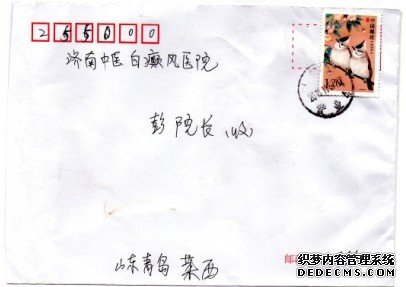 255000
济南中医白癜风医院
彭院长(收)
山东青岛 莱西
邮政
织梦内容管理系统
DEDECMS.COM